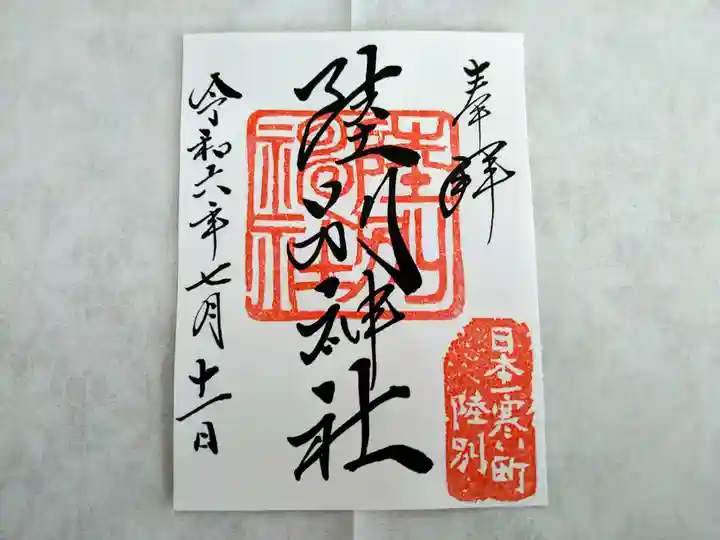 奉拝
日本一寒い町
陸別
陸別神社
陸別
神社
令和六年七月十一日